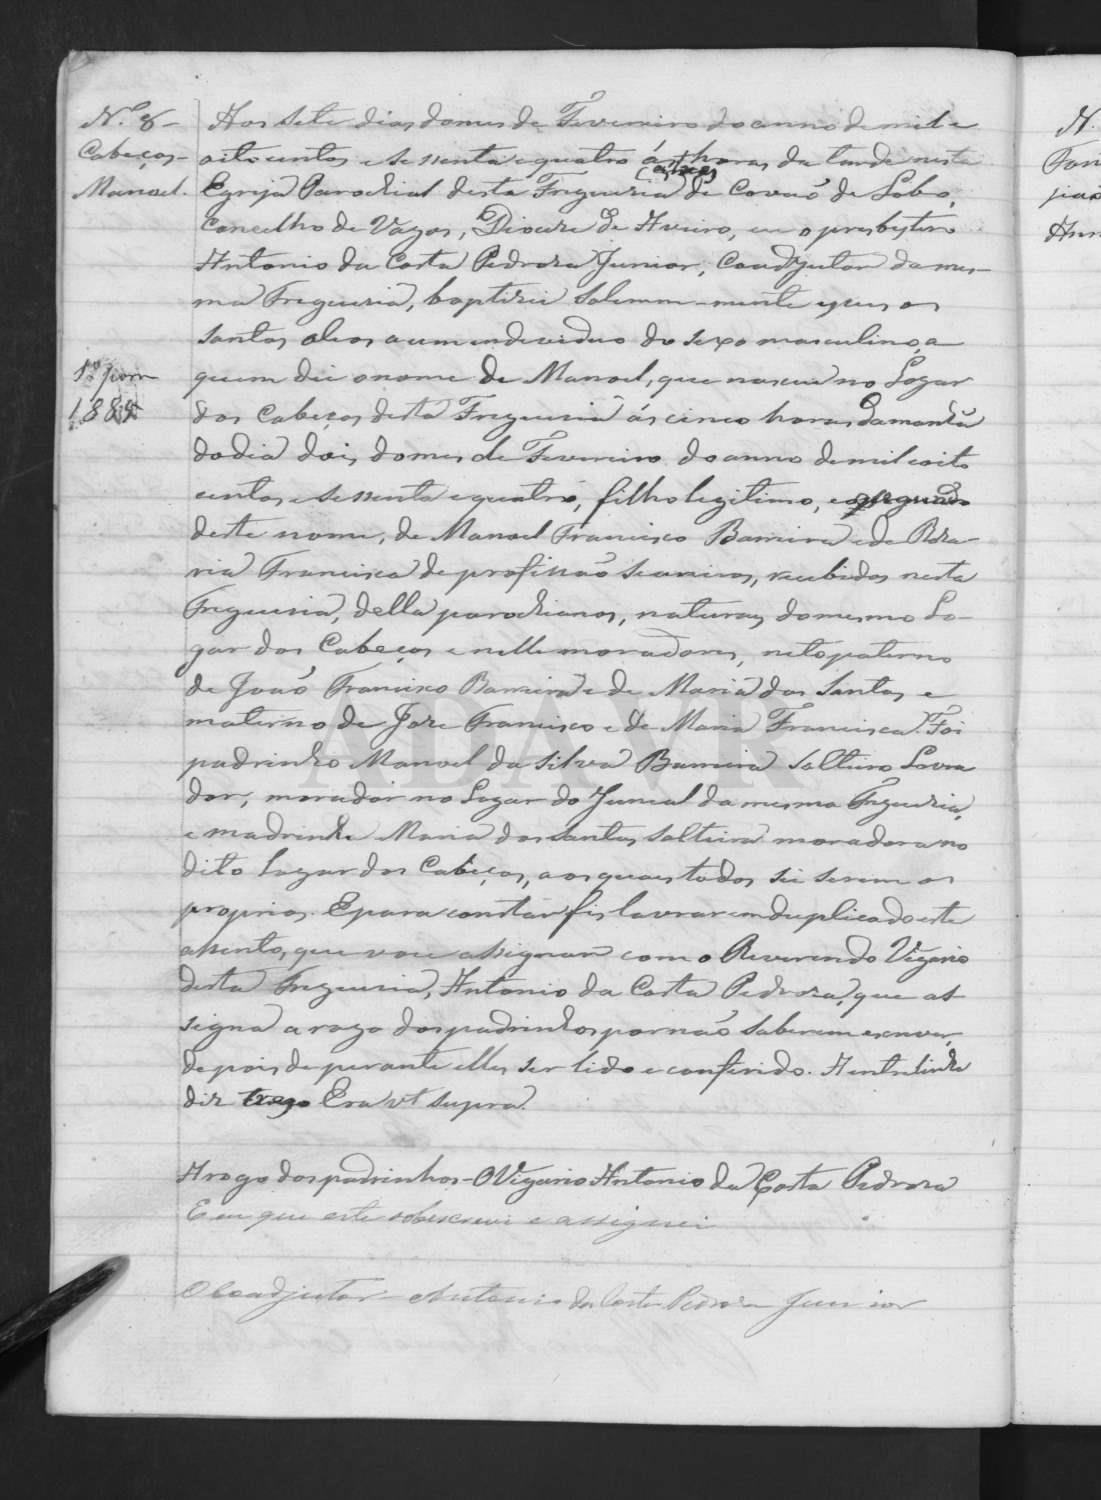 N.º 8-
Cabeços-
Manoel.
1.º pom
1884
Aos sete dias do mes de Fevereiro do anno de mil e
oitocentos e sessenta e quatro ás horas da tarde nesta
(as tres)
Egreja Parochial desta Freguesia de Covaõ de Lobo,
Concelho de Vagos, Diocese de Aveiro, eu o presbytero
Antonio da Costa Pedroza Junior, Coadjutor da mes-
ma Freguesia, baptizei solemnemente e pus os
santos oleos a um individuo do sexo masculino, a
quem dei o nome de Manoel, que nasceu no Logar
dos Cabeços desta Freguesia ás cinco horas da manhã
do dia dois do mes de Fevereiro do anno de mil oito
centos e sessenta e quatro, filho legitimo, e segundo
deste nome, de Manoel Francisco Barreira e de Roza-
ria Francisca de profissaõ seareiros, recebidos nesta
Freguesia, della parochianos, naturaes do mesmo Lo-
gar dos Cabeços e nelle moradores, neto paterno
de Joaõ Francisco Barreira e de Maria dos Santos e
materno de Joze Francisco e de Maria Francisca. Foi
padrinho Manoel da Silva Barreira solteiro Lavra
dor, morador no Logar do Juncal da mesma Freguesia,
e madrinha Maria dos Santos solteira moradora no
dito Logar dos Cabeços, aos quaes todos sei serem os
proprios. E para constar fis lavrar em duplicado este
assento, que vou assignar com o Reverendo Vigario
desta Freguesia, Antonio da Costa Pedroza, que as-
signa a rogo dos padrinhos por naõ saberem escrever,
depois de perante elles ser lido e conferido. A entrelinha
diz tres Era vt supra.
A rogo dos padrinhos - O Vigario Antonio da Costa Pedroza
E eu que este sobescrevi e assignei
O Coadjutor - Antonio da Costa Pedroza Junior
ADAVR
N.
Fon
Ann